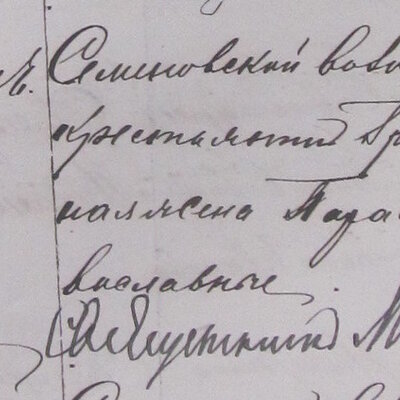 ъ. Семеновской воло
крестьянинъ Гр
ная жена Пара
вославные.